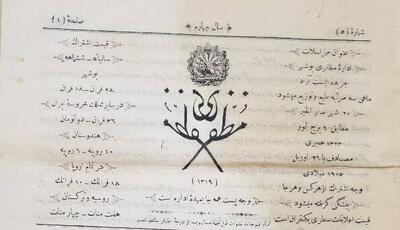 شماره (۵)
سال چهارم
صفحه (۱)
عنوان مراسلات
اداره مظفری بوشهر
جریده ایست آزاد
ماهی سه مرتبه طبع و توزیع میشود
۲۰ شهر صفر المظفر
مطابق ۶ برج ثور
۱۳۲۳ هجری
مصادف با ۲۶ اوریل
۱۹۰۵ میلادی
وجه اشتراک از هرکس و هرجا
پیشکی گرفته میشود
قیمت اعلانات سطری یکقران است
مظفری
(۱۳۱۹)
وجه پست همه جا بعهده اداره است
قیمت اشتراک
سالیانه - ششماهه
بوشهر
۲۵ قران - ۱۸ قران
در سایر ممالک محروسه ایران
۳۶ قران - دو تومان
هندوستان
۱۰ روپیه - ۶ روپیه
در تمام اروپا
۱۸ فرانک - ۱۰ فرانک
روسیه و ترکستان
هفت منات - چهار منات